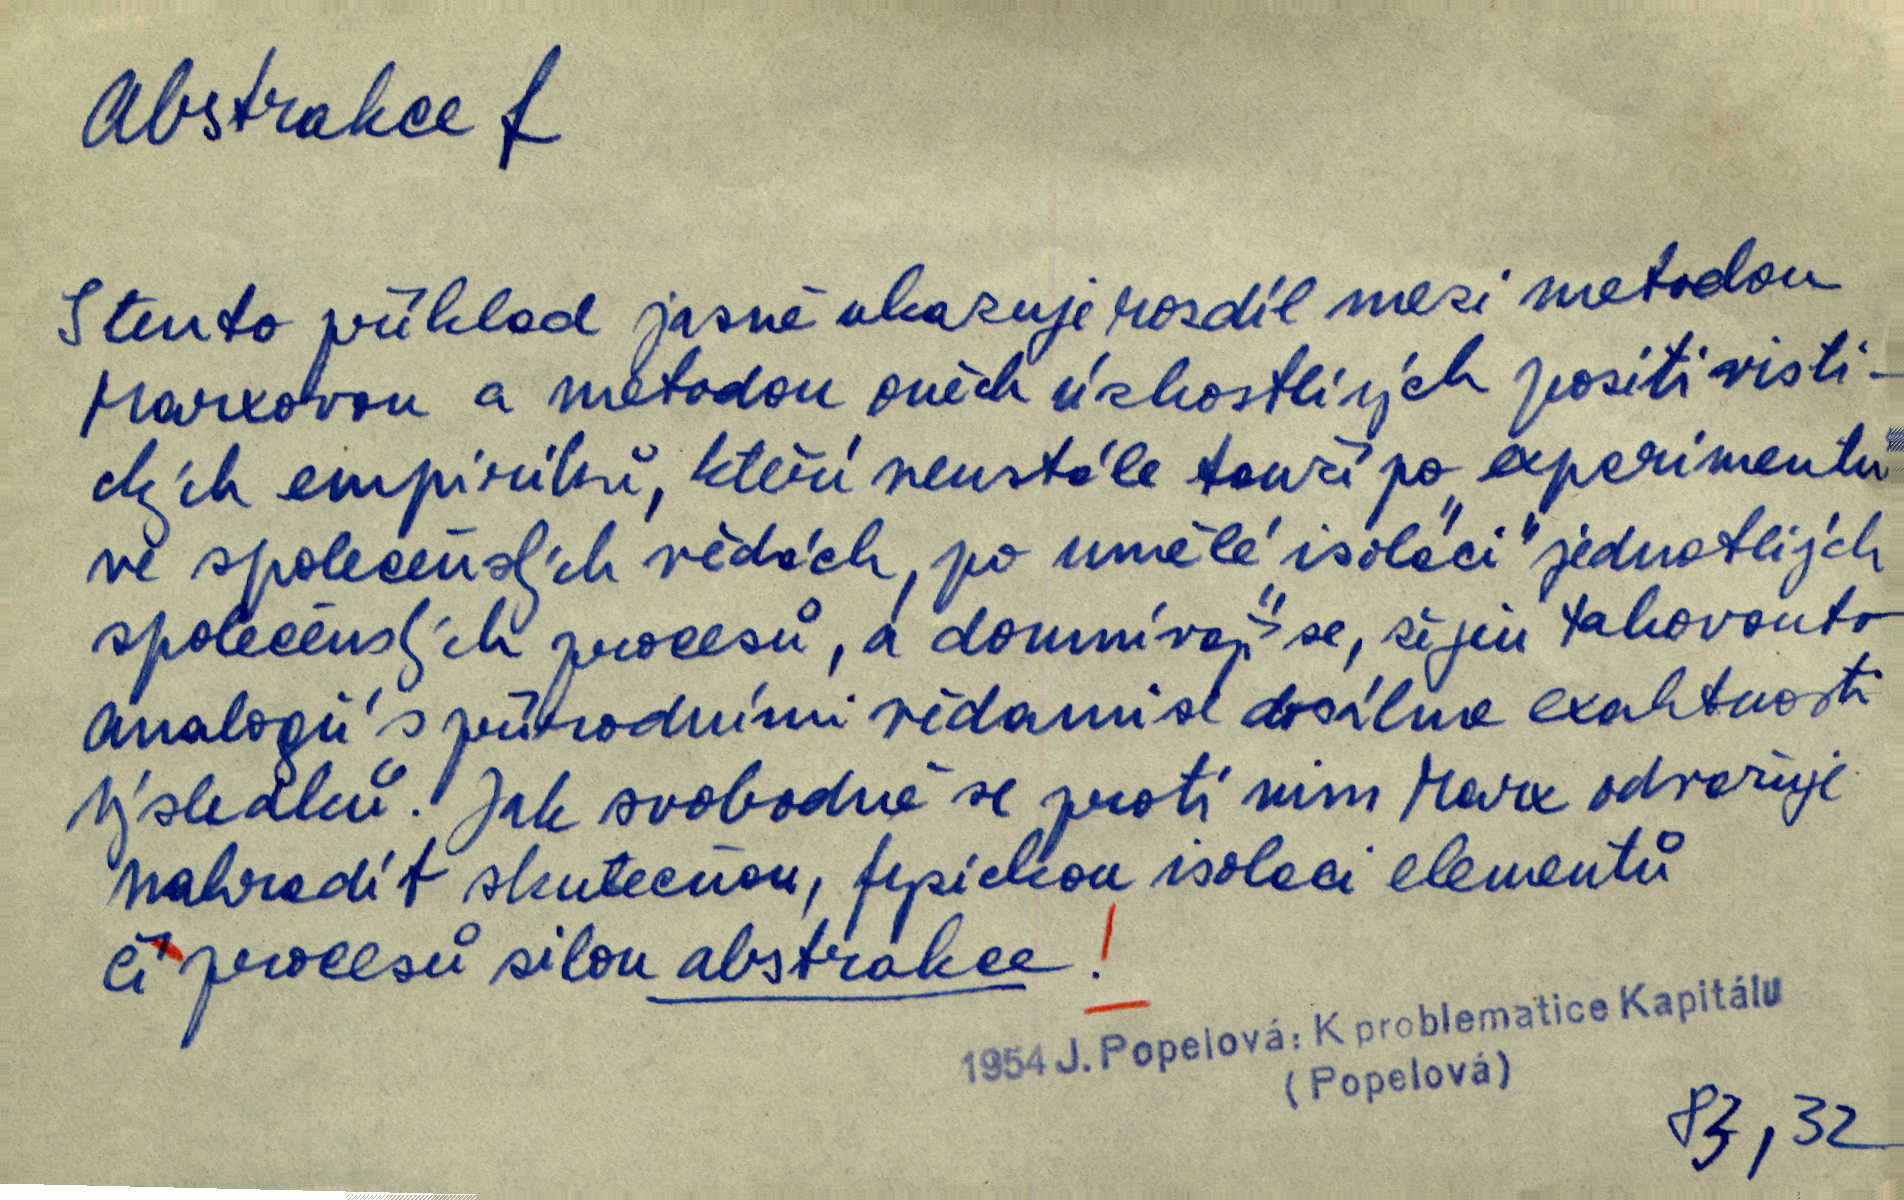 Abstrakce f
I tento příklad jasně ukazuje rozdíl mezi metodou
Marxovou a metodou oněch úzkostlivých positivisti-
ckých empiriků, kteří neustále touží po „experimentu
ve společenských vědách, po umělé isolaci" jednotlivých
společenských procesů, a domnívají se, že jen takovouto
analogií s přírodními vědami se dosáhne exaktnosti
výsledků. Jak svobodně se proti nim Marx odvažuje
nahradit skutečnou, fysickou isolaci elementů
či procesů silou abstrakce!
1954 J. Popelová: K problematice Kapitálu
(Popelová)
83, 32